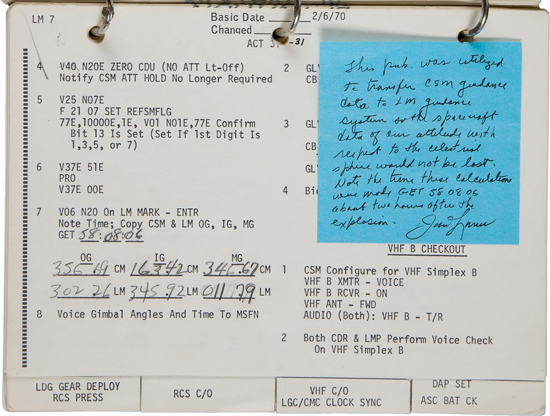 LM 7
Basic Date 2/6/70
Changed
ACT 37-31
4 V40 N20E ZERO CDU (NO ATT Lt-Off)
Notify CSM ATT HOLD No Longer Required
5 V25 N07E
F 21 07 SET REFSMFLG
77E,10000E,1E, V01 N01E,77E Confirm
Bit 13 Is Set (Set If 1st Digit Is
1,3,5, or 7)
6 V37E 51E
PRO
V37E 00E
7 V06 N20 On LM MARK - ENTR
Note Time: Copy CSM & LM OG, IG, MG
GET 58:08:06
OG IG MG
CM CM CM
302 26 LM 345.92 LM 011 79 LM
8 Voice Gimbal Angles And Time To MSFN
2 GL
CB
3 GL
CB
4 Bi
This pub. was utilized
to transfer CSM guidance
data to LM guidance
system so the spacecraft
data of our attitude with
respect to the celestrial
sphere would not be lost.
Note the time these calculations
were made GET 58 08 06
about two hours after the
explosion. Jim Lovell
VHF B CHECKOUT
1 CSM Configure for VHF Simplex B
VHF B XMTR - VOICE
VHF B RCVR - ON
VHF ANT - FWD
AUDIO (Both): VHF B - T/R
2 Both CDR & LMP Perform Voice Check
On VHF Simplex B
LDG GEAR DEPLOY
RCS PRESS
RCS C/O
VHF C/O
LGC/CMC CLOCK SYNC
DAP SET
ASC BAT CK